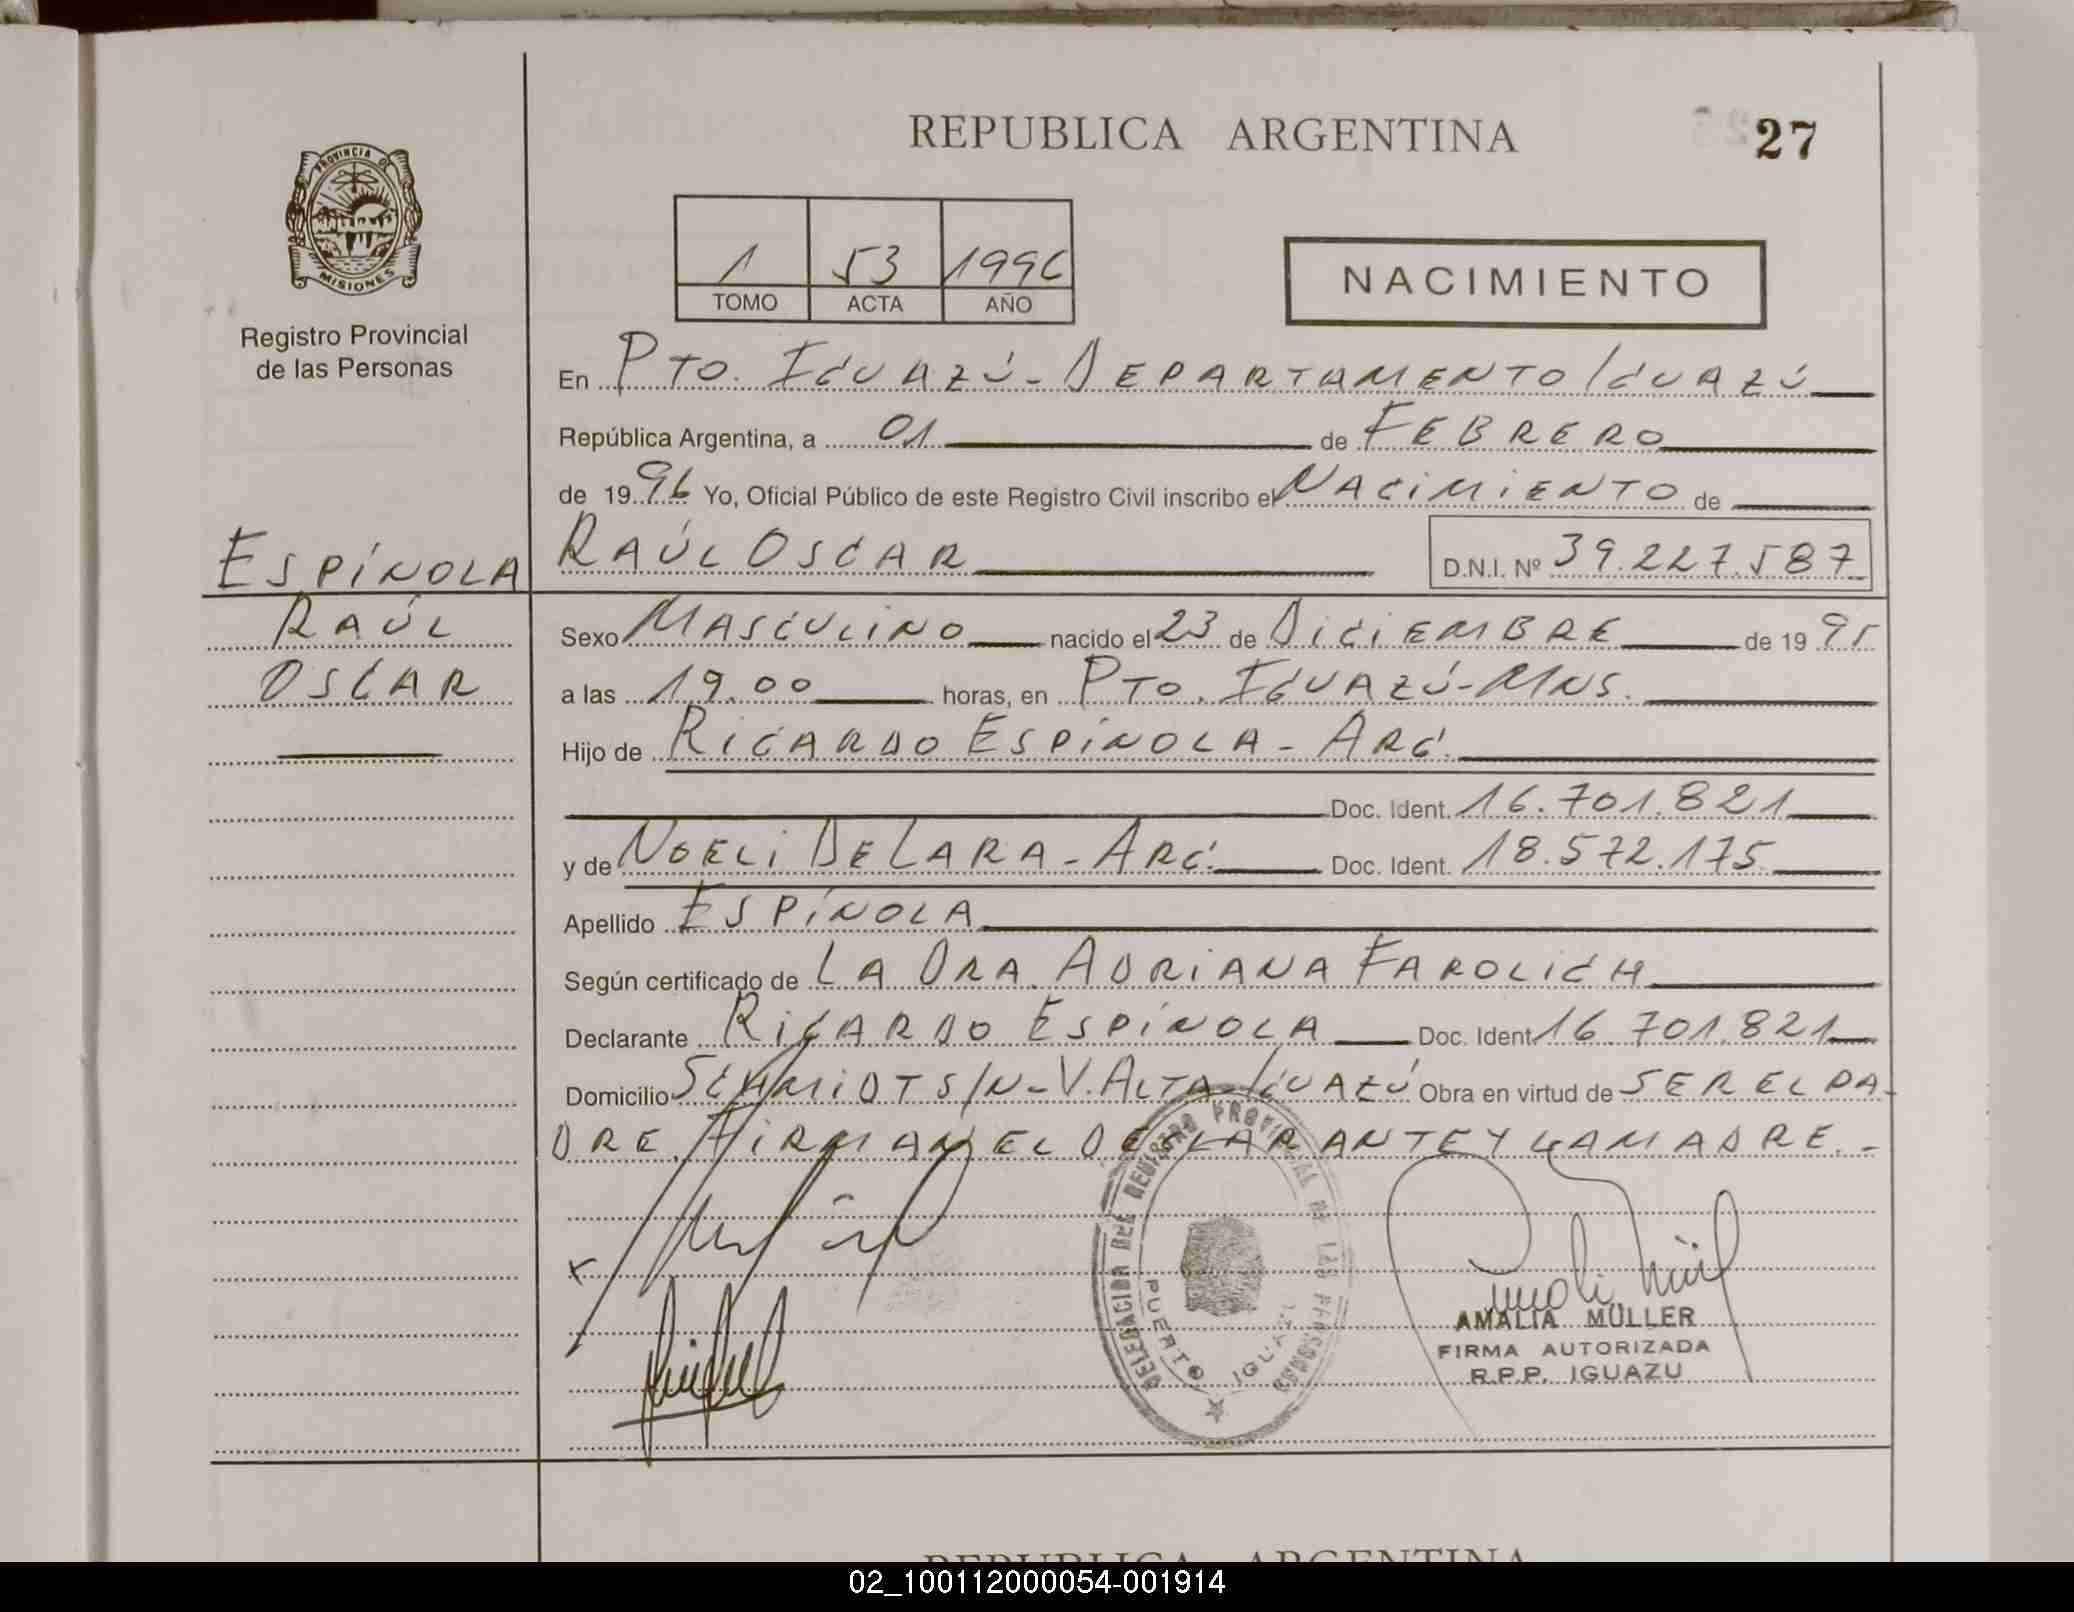 REPUBLICA ARGENTINA
27
PROVINCIA DE
MISIONES
Registro Provincial
de las Personas
1 53 1996
TOMO ACTA AÑO
NACIMIENTO
En PTO. IGUAZÚ - DEPARTAMENTO IGUAZÚ
República Argentina, a 01 de FEBRERO
de 1996 Yo, Oficial Público de este Registro Civil inscribo el NACIMIENTO de
ESPÍNOLA
RAÚL
OSCAR
RAÚL OSCAR D.N.I. Nº 39.227.587
Sexo MASCULINO nacido el 23 de DICIEMBRE de 1995
a las 19.00 horas, en PTO. IGUAZÚ - MNS.
Hijo de RICARDO ESPÍNOLA - ARG.
Doc. Ident. 16.701.821
y de NOELI DE LARA - ARG. Doc. Ident. 18.572.175
Apellido ESPÍNOLA
Según certificado de LA DRA. ADRIANA FAROLICH
Declarante RICARDO ESPÍNOLA Doc. Ident 16.701.821
Domicilio SCHMIDT S/N - V. ALTA - IGUAZÚ Obra en virtud de SER EL PA-
DRE. FIRMAN EL DECLARANTE Y LA MADRE. -
DELEGACION DEL REGISTRO PROVINCIAL DE LAS PERSONAS
PUERTO IGUAZU
AMALIA MÜLLER
FIRMA AUTORIZADA
R.P.P. IGUAZU
REPUBLICA ARGENTINA
02_100112000054-001914